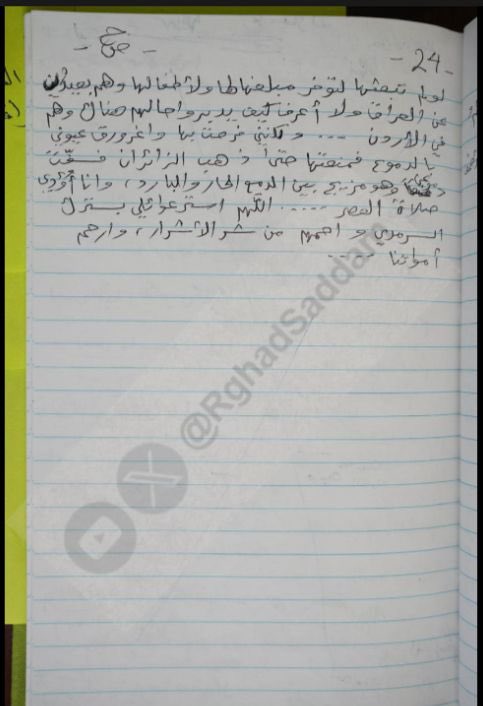 - 24 -
لو لم تبعثها لتوفر مبلغها لها ولأطفالها وهم بعيدون
عن العراق ولا أعرف كيف يدبروا حالهم هناك وهم
في الأردن .... ولكنني فرحت بها واغرورقت عيوني
بالدموع فمنعتها حتى ذهب الزائران فسقت
وهو مزيج بين الدمع الحار والبارد، وانا أؤدي
صلاة العصر ..... اللهم استر عوائلي بسترك
السرمدي واحمهم من شر الأشرار، وارحم
أمواتنا .....
@RghadSaddam